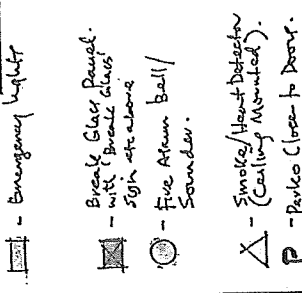 - Emergency Lights
- Break Glass Panel.
with 'Break Glass'
sign etc above
- Fire Alarm Bell/
Sounder.
- Smoke/Heat Detector
(Ceiling Mounted).
P - Perko Closer to Door.